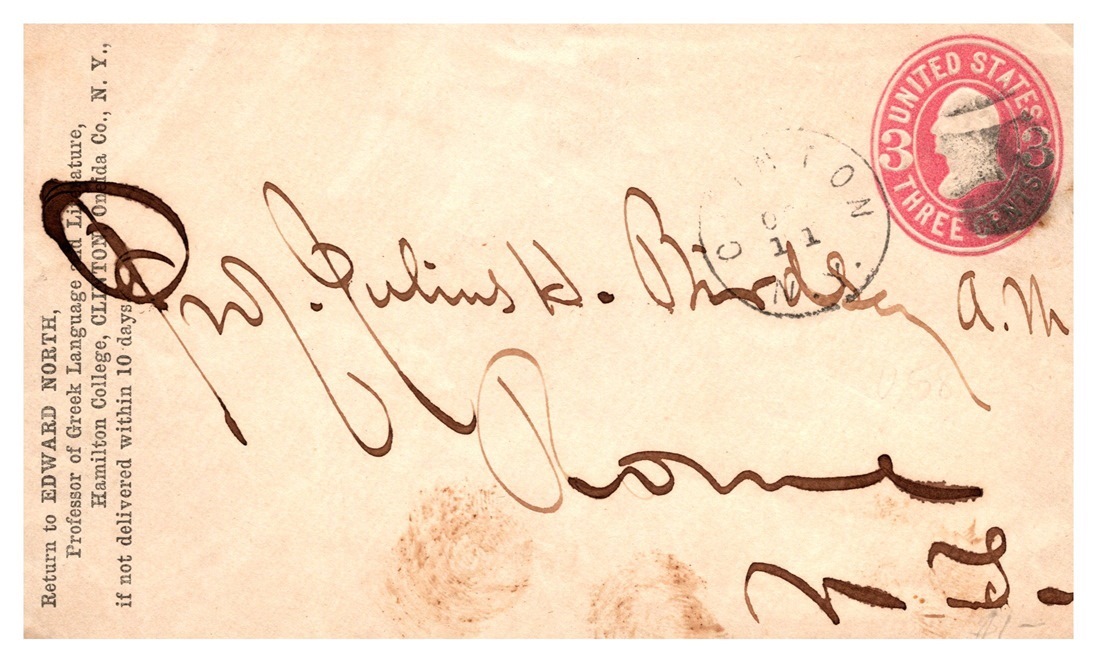 Return to EDWARD NORTH,
Professor of Greek Language and Literature,
Hamilton College, CLINTON, Oneida Co., N. Y.,
if not delivered within 10 days.
UNITED STATES
3 3
THREE CENTS
CLINTON
OC
11
N.Y.
Prof. Julius H. Birdsey A.M
Rome
N Y.
$1-